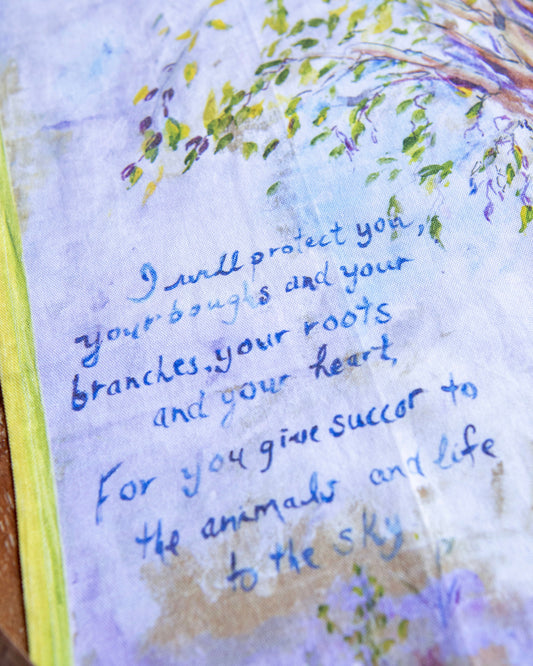 I will protect you,
your boughs and your
branches, your roots
and your heart,
For you give succor to
the animals and life
to the sky.